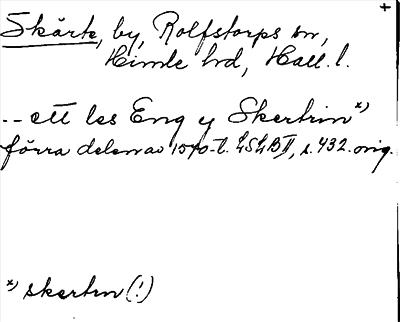 Skärte, by, Rolfstorps sn,
Himle hd, Hall. l.
-- ett les Eng y Skertrin x)
förra delen av 1540-t. LSHB II, s. 432. orig.
x) skertrn (!)